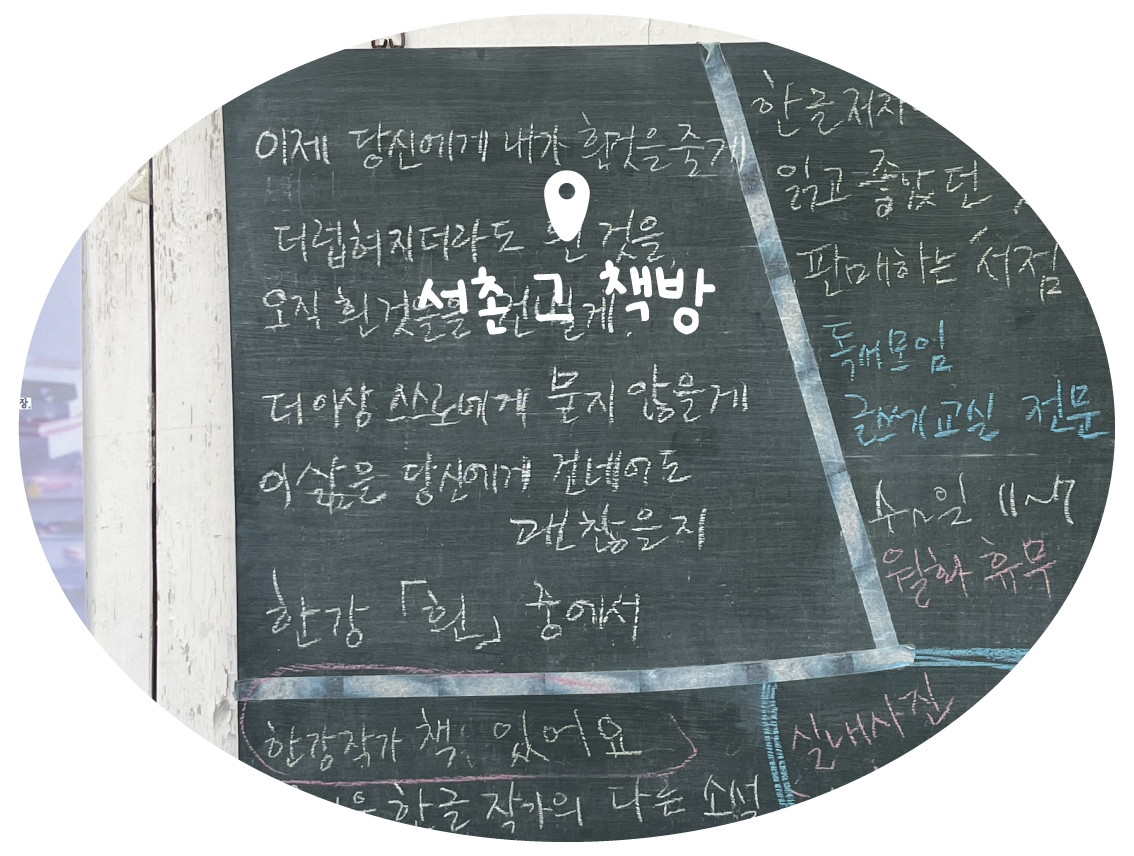 이제 당신에게 내가 흰것을 줄게
더럽혀지더라도 흰 것을,
오직 흰 것들을 건넬게.
더이상 스스로에게 묻지 않을게
이 삶을 당신에게 건네어도
괜찮을지
한강 「흰」 중에서
한강작가 책 있어요
한글 작가의 다른 소설
한글 저자
읽고 좋았던
판매하는 서점
독서모임
글쓰기교실 전문
수~일 11~7
월화 휴무
실내사진
서촌 그 책방
장